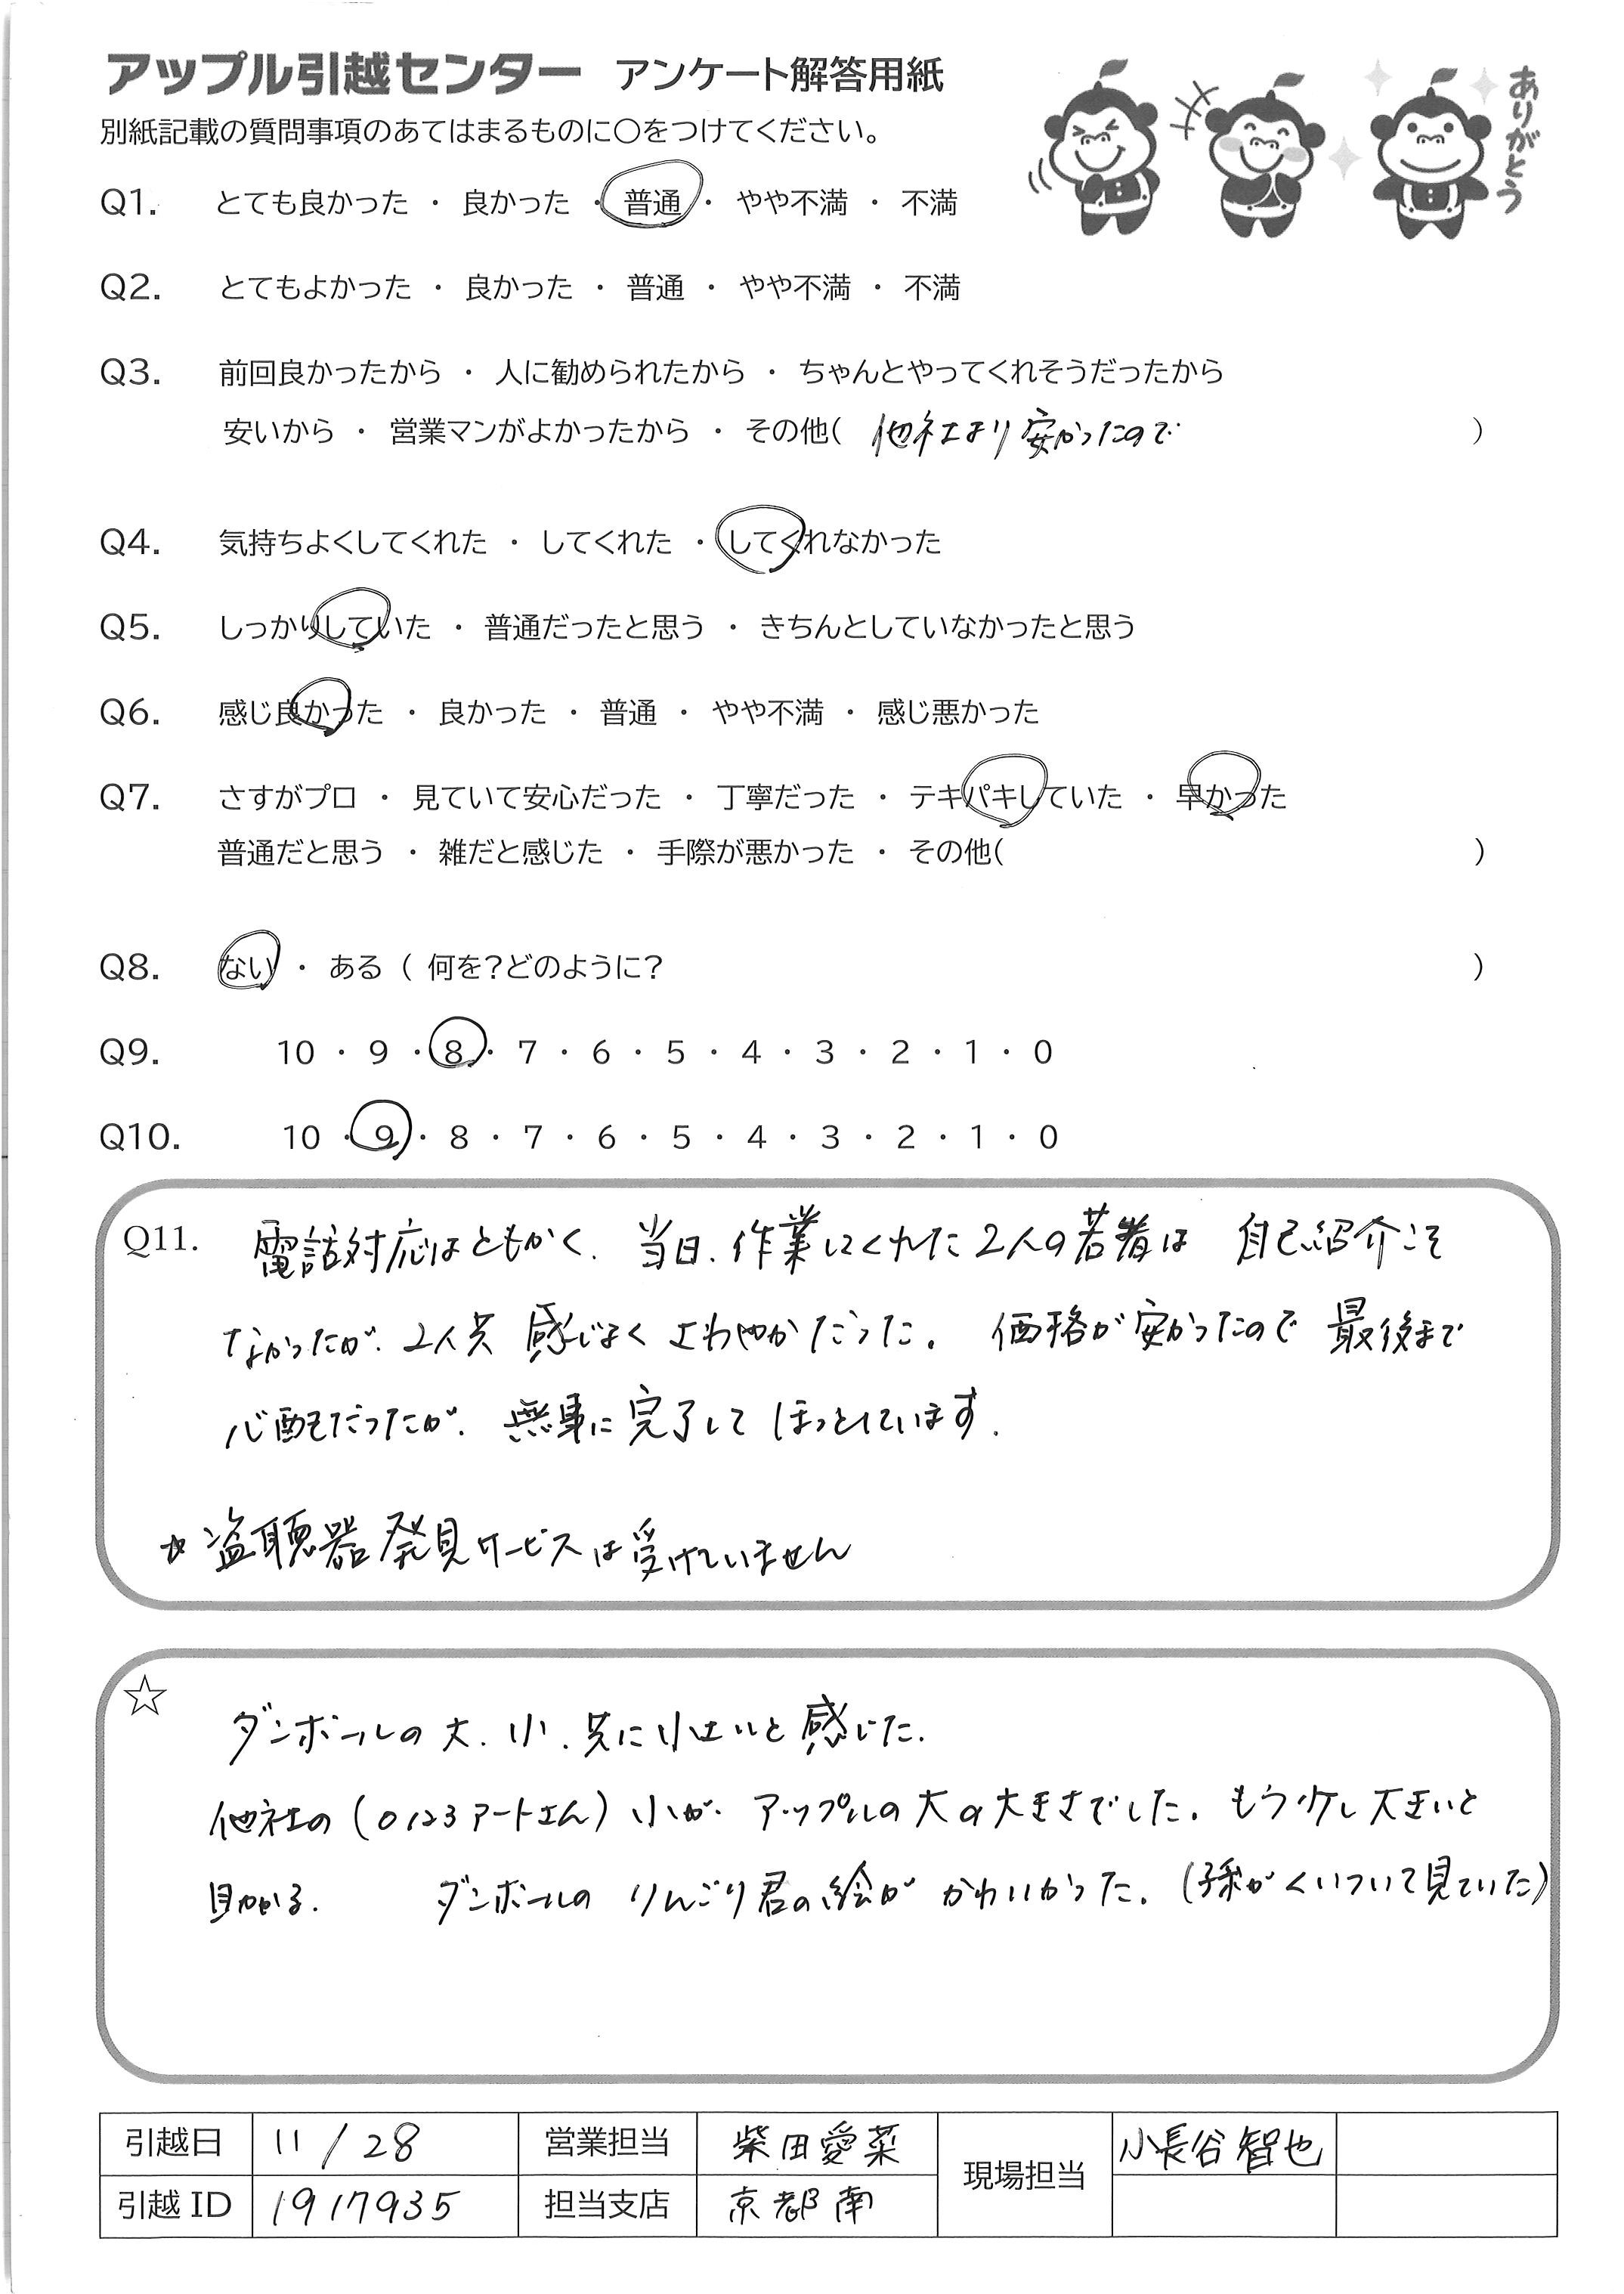 アップル引越センター アンケート解答用紙
ありがとう
別紙記載の質問事項のあてはまるものに〇をつけてください。
Q1. とても良かった ・ 良かった ・ 普通 ・ やや不満 ・ 不満
Q2. とてもよかった ・ 良かった ・ 普通 ・ やや不満 ・ 不満
Q3. 前回良かったから ・ 人に勧められたから ・ ちゃんとやってくれそうだったから
安いから ・ 営業マンがよかったから ・ その他( 他社より安かったので )
Q4. 気持ちよくしてくれた ・ してくれた ・ してくれなかった
Q5. しっかりしていた ・ 普通だったと思う ・ きちんとしていなかったと思う
Q6. 感じ良かった ・ 良かった ・ 普通 ・ やや不満 ・ 感じ悪かった
Q7. さすがプロ ・ 見ていて安心だった ・ 丁寧だった ・ テキパキしていた ・ 早かった
普通だと思う ・ 雑だと感じた ・ 手際が悪かった ・ その他( )
Q8. ない ・ ある ( 何を?どのように? )
Q9. 10 ・ 9 ・ 8 ・ 7 ・ 6 ・ 5 ・ 4 ・ 3 ・ 2 ・ 1 ・ 0
Q10. 10 ・ 9 ・ 8 ・ 7 ・ 6 ・ 5 ・ 4 ・ 3 ・ 2 ・ 1 ・ 0
Q11. 電話対応はともかく、当日、作業してくれた2人の若者は 自己紹介こそ
なかったが、2人共 感じよく さわやかだった。 価格が安かったので 最後まで
心配だったが、無事に完了して ほっとしています。
☆盗聴器発見サービスは受けていません
☆ ダンボールの大、小、共に小さいと感じた。
他社の(0123アートさん)小が、アップルの大の大きさでした。もう少し大きいと
助かる。 ダンボールの りんごり君の絵が かわいかった。(孫がくいついて見ていた)
引越日 11/28 営業担当 柴田愛菜 現場担当 小長谷智也
引越ID 1917935 担当支店 京都南